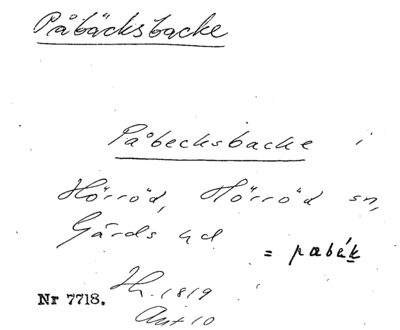 Påbäcksbacke
Påbecksbacke i
Hörröd, Hörröd sn,
Gärds hd
= pabék
Nr 7718. Hr. 1819
Ant 10